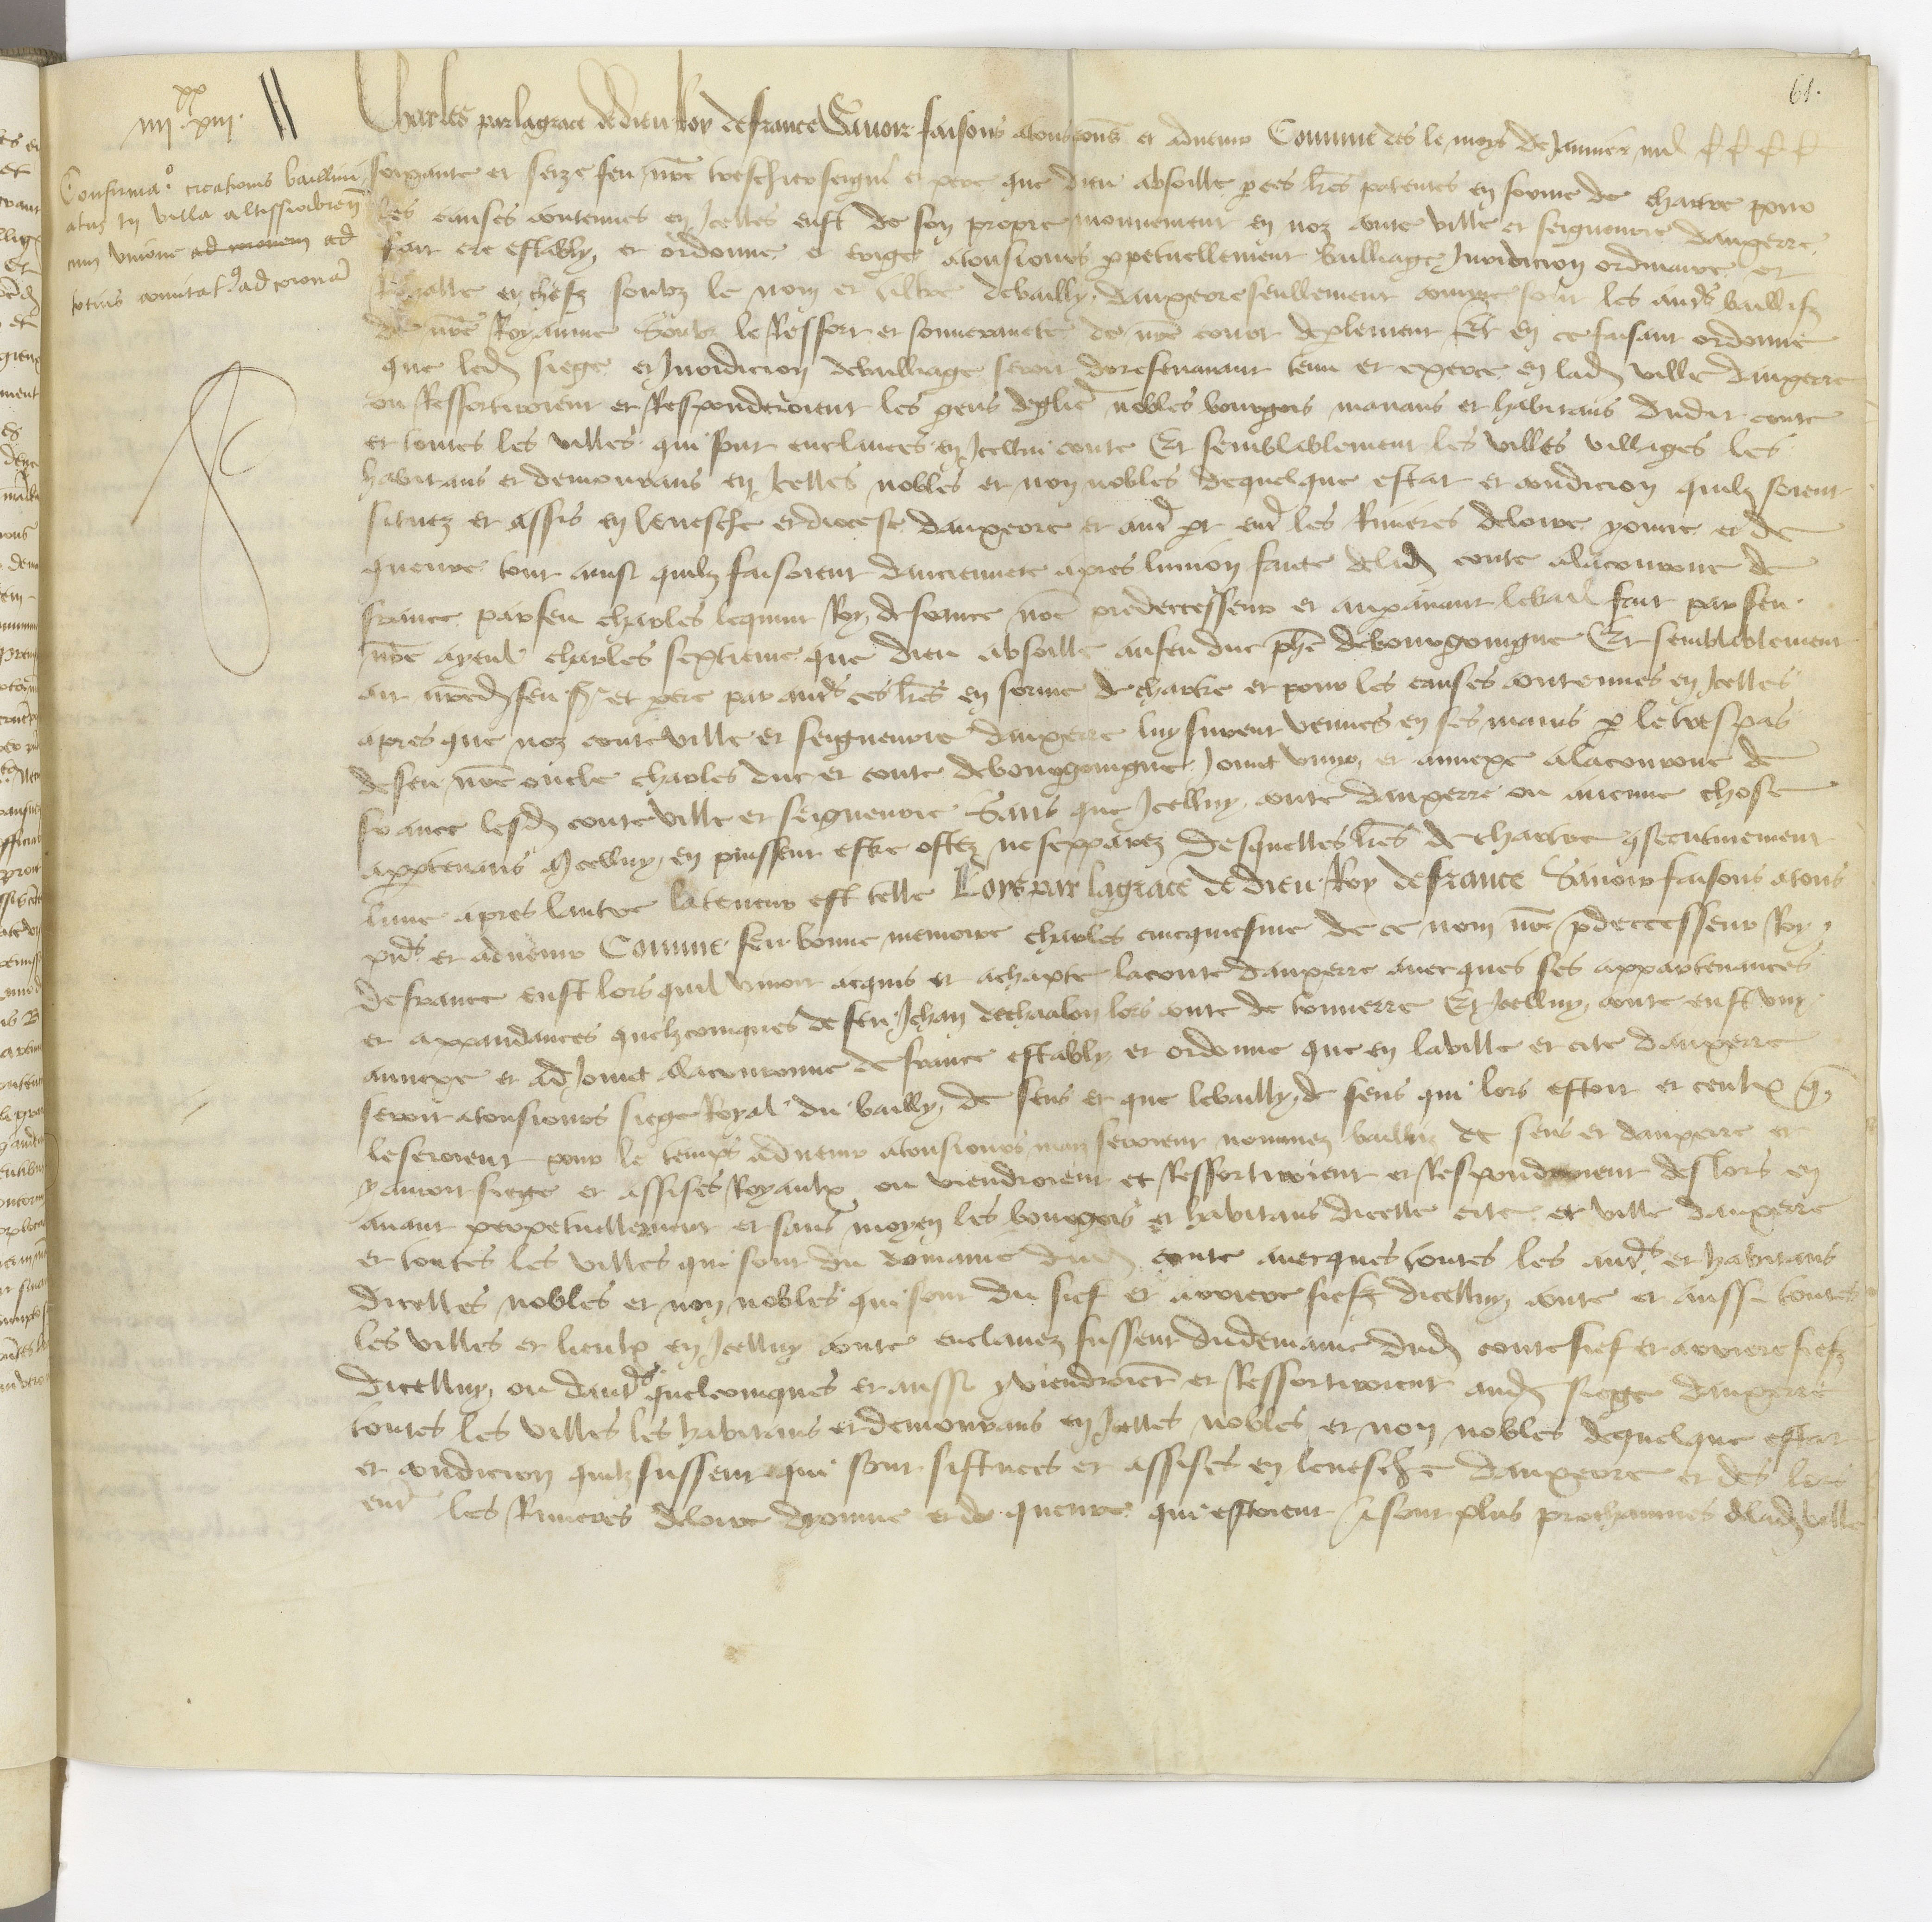 61.
iiii xx xiii.
Confirmao creationis baillivi
atus in villa altissiodorensi
cum unione ad ad
totius comitatus ad coronam
Charles par la grace de dieu Roy de france Savoir faisons a tous presens et advenir Comme des le moys de Janvier mil cccc
soixante et seize feu nre treschier seigneur et pere que dieu absoille par ces lres patentes en forme de chartre pour
les causes contenues en Icelles eust de son propre mouvement en noz conte ville et seigneurie dauxerre
fait cree estably et ordonne et erige a tousiours perpetuellement bailliage Juridicion ordinaire et
Royalle en chefz soubz le nom et tiltre de bailly dauxerre seullement comme sont les autres baillifz
de nre Royaume Soubz le Ressort et souverainete de nre court de parlement Et en ce faisant ordonne
que led siege et Juridicion de bailliage seroit doresenavant tenu et exerce en lad ville dauxerre
ou Ressortiroient et Respondroient les gens deglise nobles bourgois manans et habitans dudit conte
et toutes les villes qui sont enclavees en Icellui conte Et semblablement les villes villaiges les
habitans et demourans en Icelles nobles et non nobles de quelque estat et condicion quilz soient
situez et assis en levesche et diocese dauxerre et autre part entre les Rivieres de loire yonne et de
queure tout ainsi quilz faisoient danciennete apres lunion faicte de lad conte a la couronne de
france par feu charles le quint Roy de france nre predecesseur et auparavant le bail fait par feu
nre ayeul charles septieme que dieu absoille a feu duc phe de bourgongne Et semblablement
ait nred feu sr et pere par autres ces lres en forme de chartre et pour les causes contenues en Icelles
apres que noz conte ville et seigneurie dauxerre luy furent venues en ses mains par le trespas
de feu nre oncle charles duc et conte de bourgongne Joinct uny et annexe a la couronne de
france lesd conte ville et seigneurie Sans que Icelluy conte dauxerre ou aucune chose
appartenans a Icelluy en puissent estre ostez ne separez Desquelles lres de chartre consecutivement
lune apres lautre la teneur est telle Loys par la grace de dieu Roy de france Savoir faisons a tous
presens et advenir Comme feu bonne memoire charles cincquiesme de ce nom nre predecesseur Roy
de france eust lors quil vivoit acquis et achapte la conte dauxerre avecques ses appartenances
et appendances quelzconques de feu Jehan de chaalon lors conte de tonnerre Et Icelluy conte eust uny
annexe et adJoinct a la couronne de france estably et ordonne que en la ville et cite dauxerre
seroit a tousiours siege Royal du bailly de Sens et que le bailly de Sens qui lors estoit et ceulx qui
le seroient pour le temps advenir a tousiours mais seroient nommez baillifz de Sens et dauxerre et
y auroit siege et assises Royaulx ou viendroient et Ressortiroient et Respondroient deslors en
avant perpetuellement et sans moyen les bourgois et habitans dicelle cite et ville dauxerre
et toutes les villes qui sont du domaine dud conte avecques toutes les autres et habitans
dicelles nobles et non nobles qui sont du fief et arriere fiefz dicelluy conte et aussi toutes
les villes et lieulx en Icelluy conte enclavez fussent du demaine dud conte fief et arriere fiefz
dicelluy ou dautres quelconques et aussi y viendroient et Ressortiroient aud siege dauxerre
toutes les villes les habitans et demourans en Icelles nobles et non nobles de quelque estat
et condicion quilz fussent qui sont situees et assises en levesche dauxerre et des lors
entre les Rivieres de loire dyonne et de queure qui estoient et sont plus prochaines de lad ville